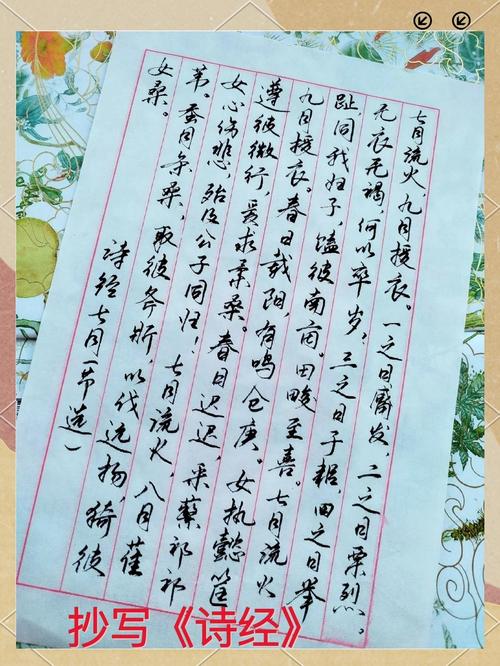 七月流火，九月授衣。一之日觱发，二之日栗烈。
无衣无褐，何以卒岁，三之日于耜，四之日举
趾，同我妇子，馌彼南亩。田畯至喜。七月流火
九月授衣。春日载阳，有鸣仓庚。女执懿筐
遵彼微行，爰求柔桑。春日迟迟，采蘩祁祁
女心伤悲，殆及公子同归！七月流火，八月萑
苇。蚕月条桑，取彼斧斨，以伐远扬，猗彼
女桑。
诗经七月（节选）
抄写《诗经》